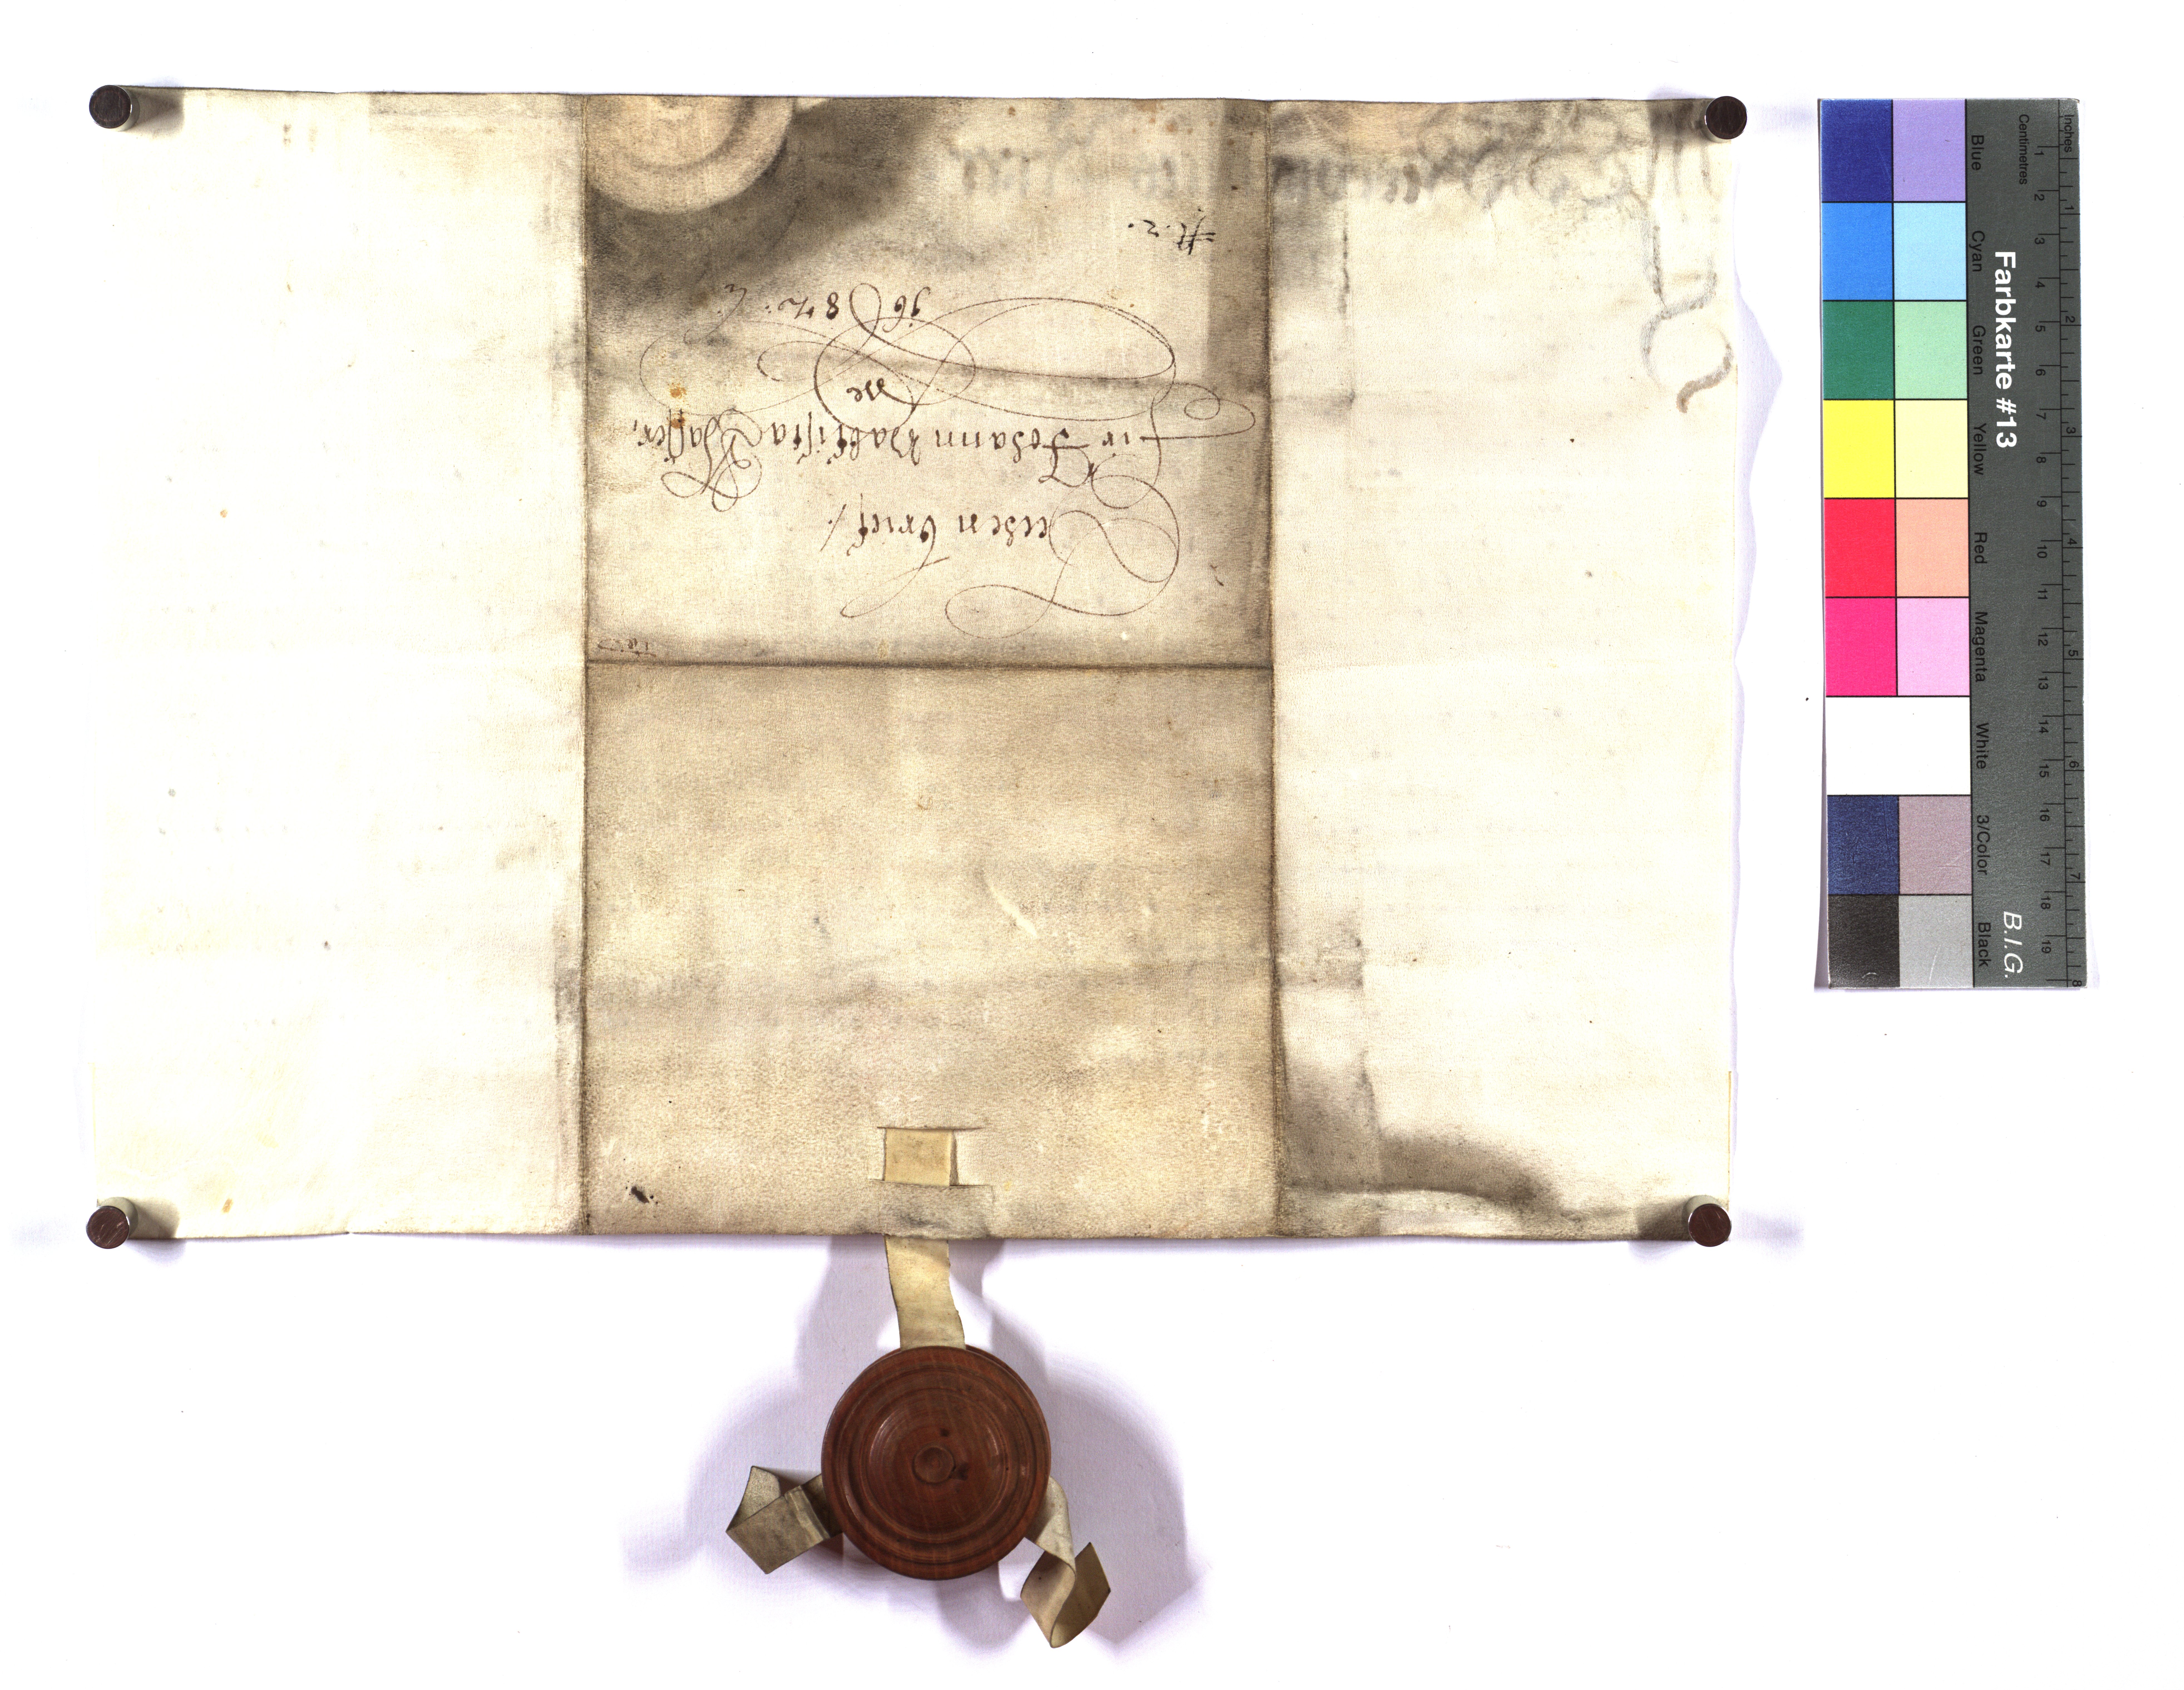 Lehen brief /.
für Johann Baptista Khasser,
de
1682.
N. 2.
Farbkarte #13
B.I.G.
Blue Cyan Green Yellow Red Magenta White 3/Color Black
Centimetres
1 2 3 4 5 6 7 8 9 10 11 12 13 14 15 16 17 18 19
Inches
1 2 3 4 5 6 7 8